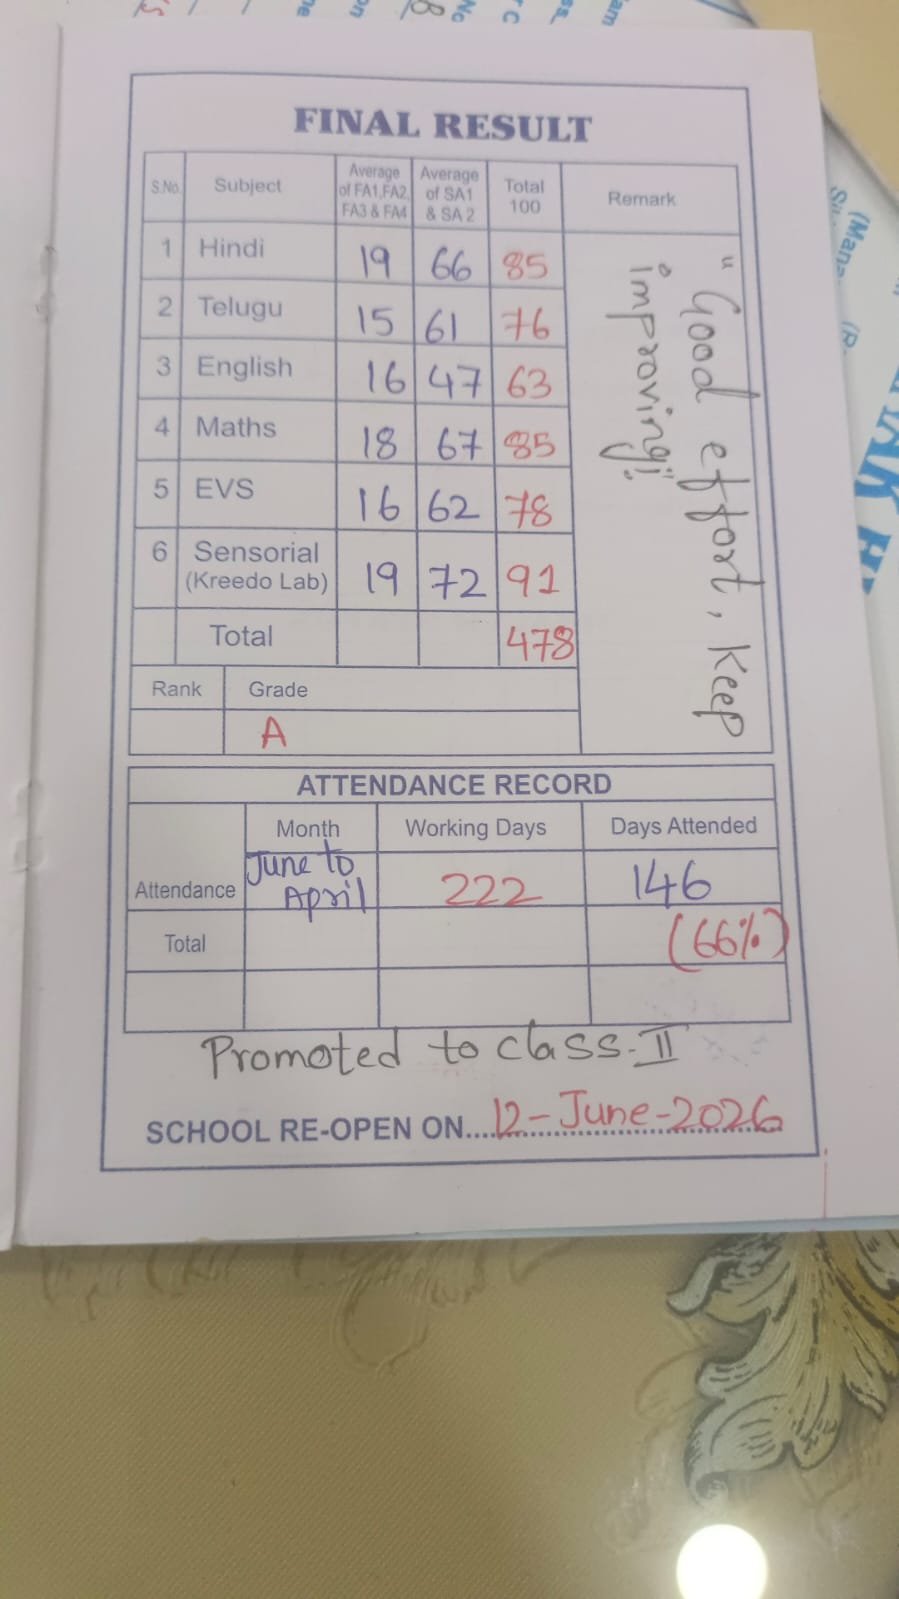 FINAL RESULT
S.No. Subject Average of FA1,FA2, FA3 & FA4 Average of SA1 & SA 2 Total 100 Remark
1 Hindi 19 66 85
2 Telugu 15 61 76
3 English 16 47 63
4 Maths 18 67 85
5 EVS 16 62 78
6 Sensorial (Kreedo Lab) 19 72 91
Total 478
"Good effort, Keep
improving!"
Rank Grade
A
ATTENDANCE RECORD
Month Working Days Days Attended
Attendance June to April 222 146
Total (66%)
Promoted to class-II
SCHOOL RE-OPEN ON....12-June-2026